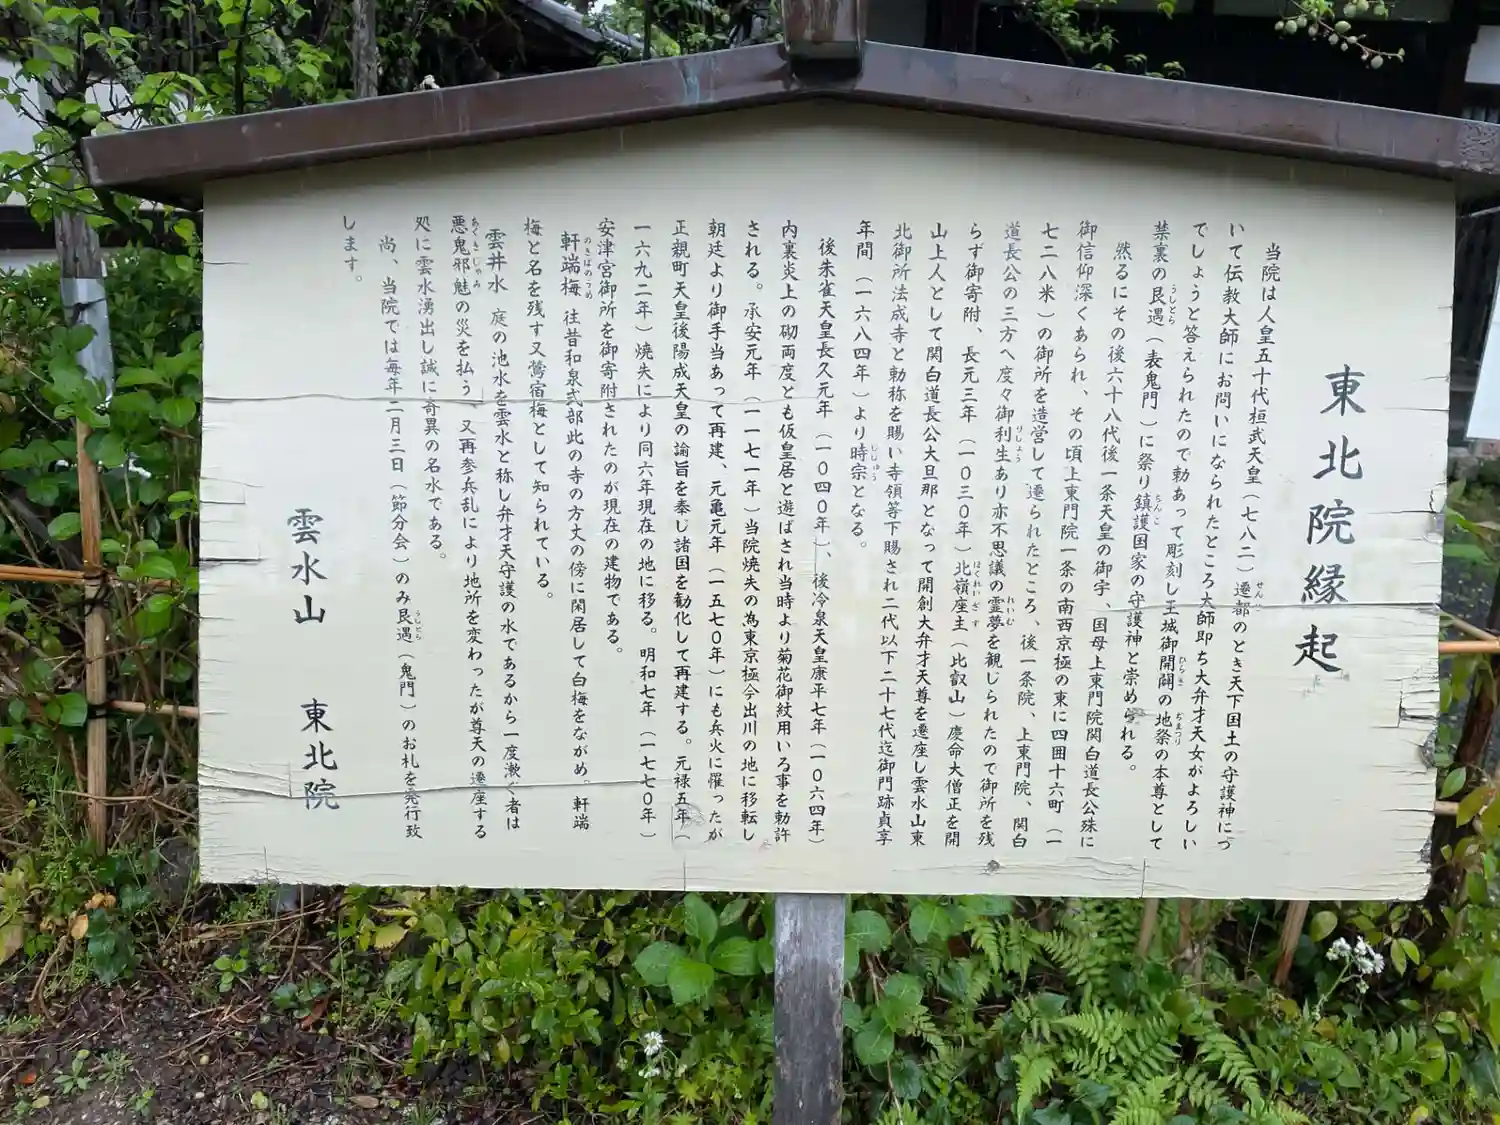 東北院縁起
当院は人皇五十代桓武天皇（七八二）遷都のとき天下国土の守護神につ
いて伝教大師にお問いになられたところ大師即ち大弁才天女がよろしい
でしょうと答えられたので勅あって彫刻し王城御開闢の地祭の本尊として
禁裏の艮遇（表鬼門）に祭り鎮護国家の守護神と崇められる。
然るにその後六十八代後一条天皇の御宇、国母上東門院関白道長公殊に
御信仰深くあられ、その頃上東門院一条の南西京極の東に四囲十六町（一
七二八米）の御所を造営して遷られたところ、後一条院、上東門院、関白
道長公の三方へ度々御利生あり亦不思議の霊夢を観じられたので御所を残
らず御寄附、長元三年（一〇三〇年）北嶺座主（比叡山）慶命大僧正を開
山上人として関白道長公大旦那となって開創大弁才天尊を遷座し雲水山東
北御所法成寺と勅称を賜い寺領等下賜され二代以下二十七代迄御門跡貞享
年間（一六八四年）より時宗となる。
後朱雀天皇長久元年（一〇四〇年）、後冷泉天皇康平七年（一〇六四年）
内裏炎上の砌両度とも仮皇居と遊ばされ当時より菊花御紋用いる事を勅許
される。承安元年（一一七一年）当院焼失の為東京極今出川の地に移転し
朝廷より御手当あって再建、元亀元年（一五七〇年）にも兵火に罹ったが
正親町天皇後陽成天皇の論旨を奉じ諸国を勧化して再建する。元禄五年（
一六九二年）焼失により同六年現在の地に移る。明和七年（一七七〇年）
安津宮御所を御寄附されたのが現在の建物である。
軒端梅　往昔和泉式部此の寺の方丈の傍に閑居して白梅をながめ。軒端
梅と名を残す又鶯宿梅として知られている。
雲井水　庭の池水を雲水と称し弁才天守護の水であるから一度漱ぐ者は
悪鬼邪魅の災を払う、又再参兵乱により地所を変わったが尊天の遷座する
処に雲水湧出し誠に奇異の名水である。
尚、当院では毎年二月三日（節分会）のみ艮遇（鬼門）のお札を発行致
します。
雲水山　東北院